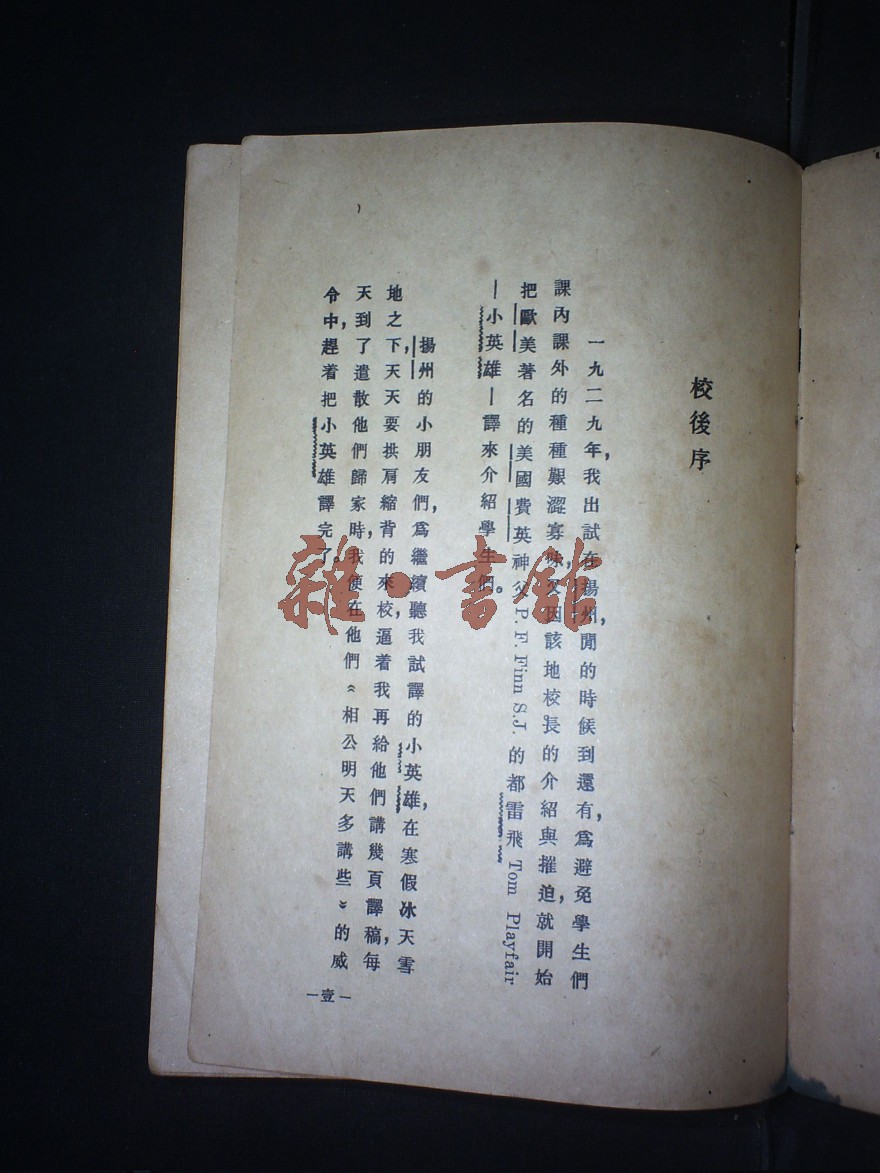 校後序
一九二九年，我出試在揚州，閒的時候到還有，爲避免學生們
課內課外的種種艱澀寡味，又因該地校長的介紹與摧迫，就開始
把歐美著名的美國費英神父P. F. Finn S.J.的都雷飛Tom Playfair
—小英雄—譯來介紹學生們。
揚州的小朋友們，爲繼續聽我試譯的小英雄，在寒假冰天雪
地之下，天天要拱肩縮背的來校，逼着我再給他們講幾頁譯稿，每
天到了遣散他們歸家時，我便在他們《相公明天多講些》的威
令中，趕着把小英雄譯完了。
—壹—
雜·書館